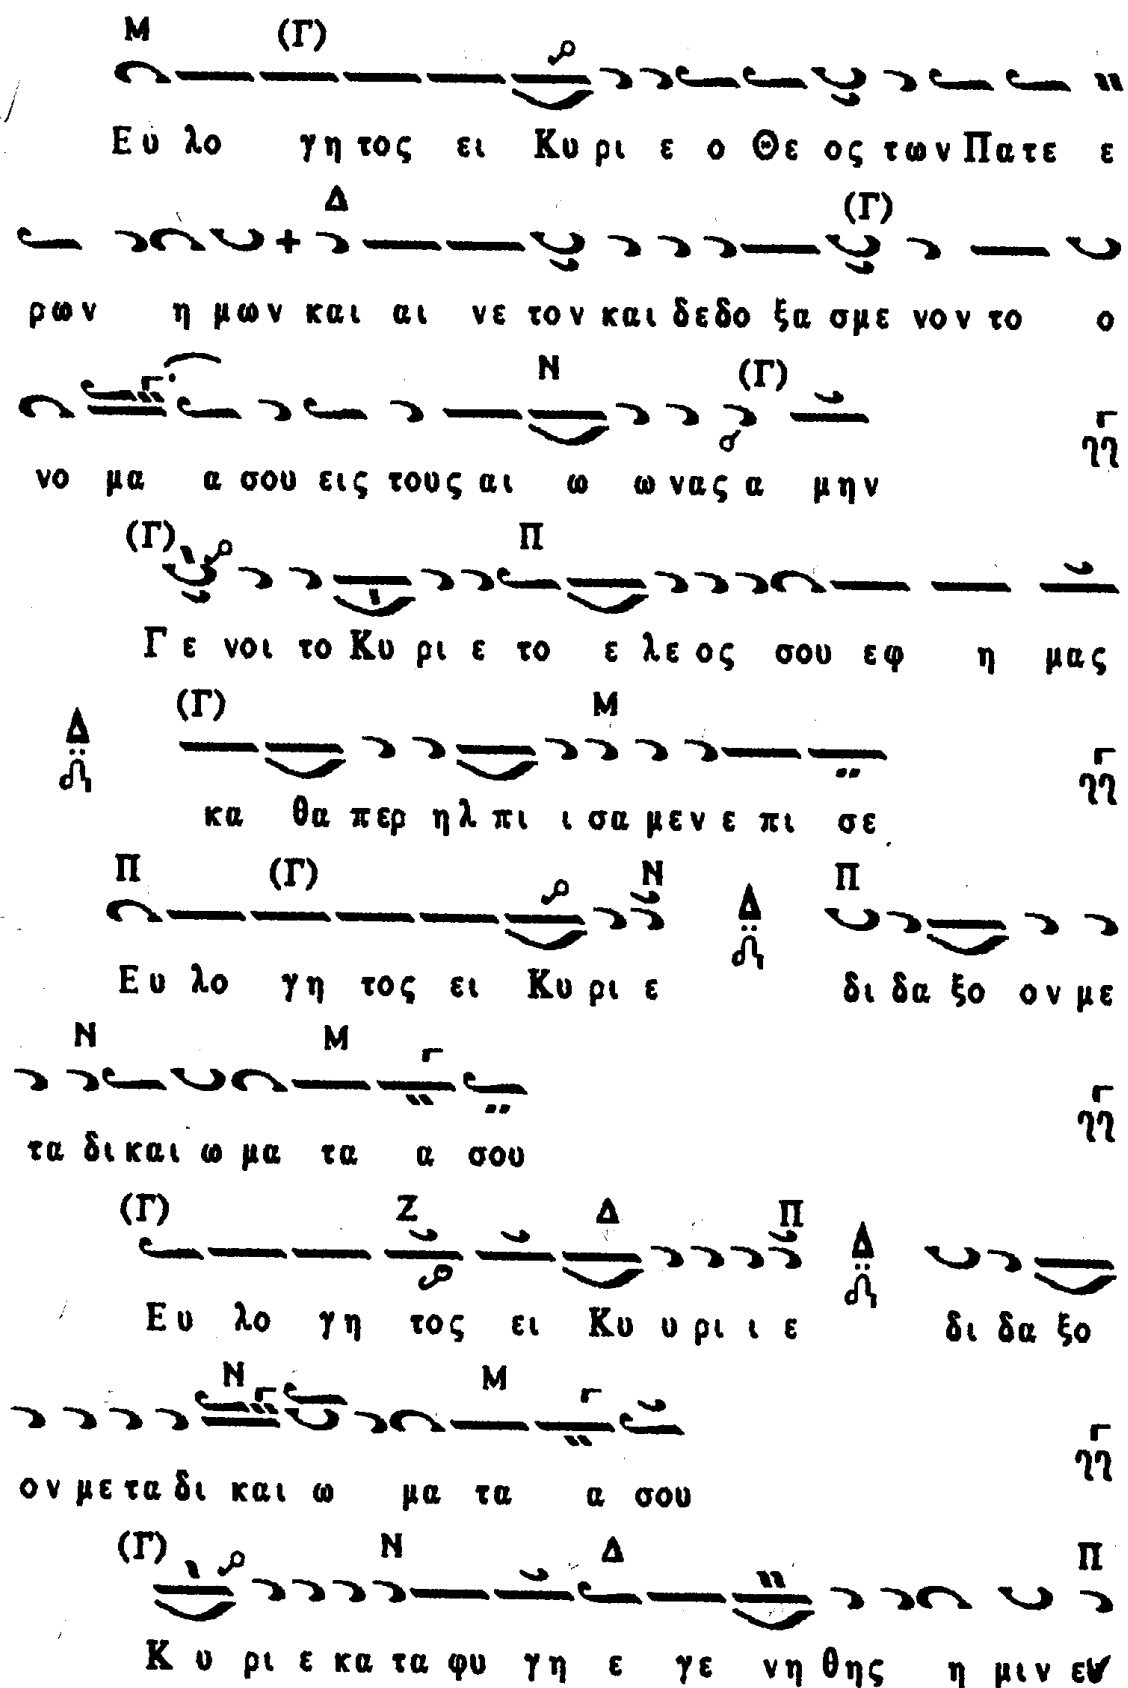 Μ (Γ)
Ευ λο γη τος ει Κυ ρι ε ο Θε ος των Πα τε ε
Δ (Γ)
ρων η μων και αι νε τον και δε δο ξα σμε νον το ο
Ν (Γ)
νο μα α σου εις τους αι ω ω νας α μην
(Γ) Π
Γε ε νοι το Κυ ρι ε το ε λε ος σου εφ η μας
Δ (Γ) Μ
κα θα περ ηλ πι ι σα μεν ε πι σε
Π (Γ) Ν Δ Π
Ευ λο γη τος ει Κυ ρι ε δι δα ξο ον με
Ν Μ
τα δι και ω μα τα α σου
(Γ) Ζ Δ Π Δ
Ευ λο γη τος ει Κυ υ ρι ι ε δι δα ξο
Ν Μ
ον με τα δι και ω μα τα α σου
(Γ) Ν Δ Π
Κ υ ρι ε κα τα φυ γη ε γε νη θης η μιν εν